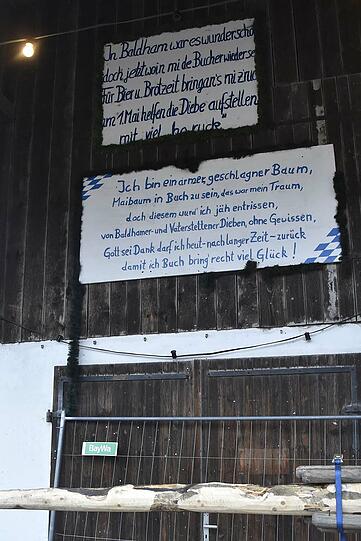 In Baldham war es wunderschö
doch jetzt woin mi de Bucher wieder se
für Bier u. Brotzeit bringan's mi z'ruc
am 1. Mai helfen die Diebe aufstellen
mit viel ho ruck"
"Ich bin ein armer, geschlagner Baum,
Maibaum in Buch zu sein, das war mein Traum,
doch diesem wurd ich jäh entrissen,
von Baldhamer- und Vaterstettener Dieben, ohne Gewissen,
Gott sei Dank darf ich heut - nach langer Zeit - zurück
damit ich Buch bring' recht viel Glück !
BayWa